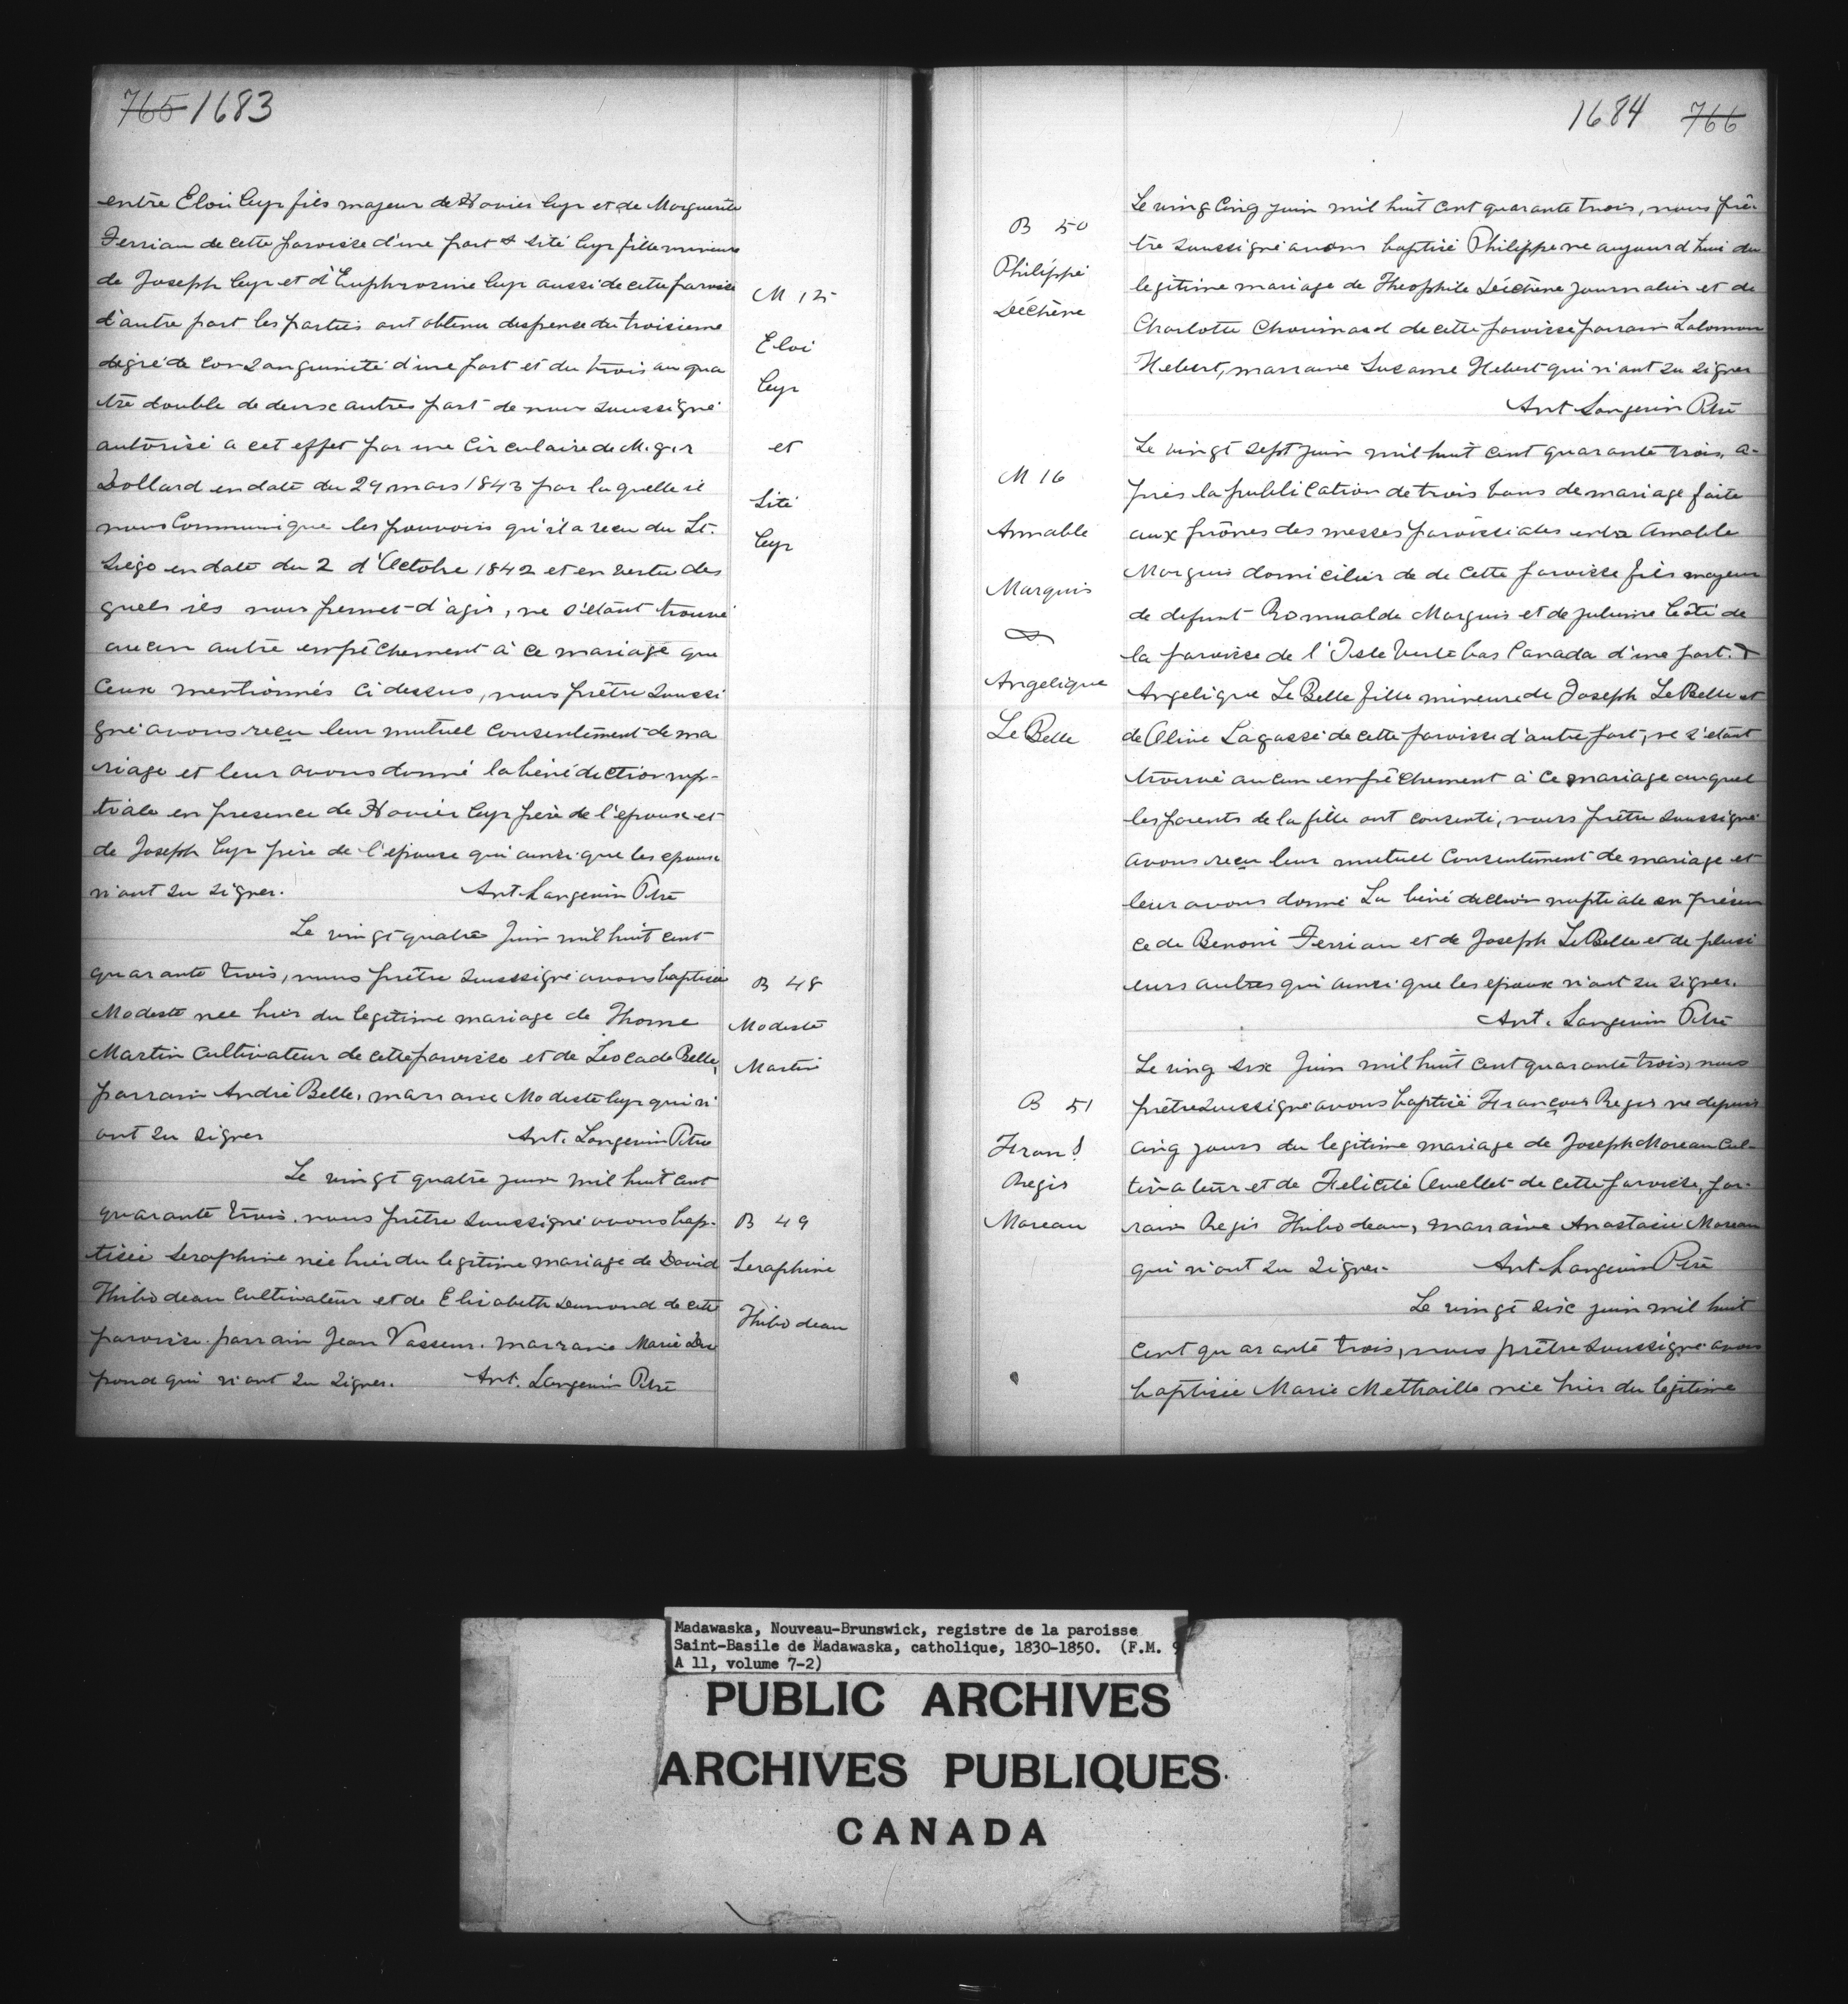 765 1683
entre Eloi Cyr fils majeur de Xavier Cyr et de Marguerite
Terriau de cette paroisse d'une part & Sité Cyr fille mineure
de Joseph Cyr et d'Euphrosine Cyr aussi de cette paroisse
d'autre part les parties ont obtenu dispense du troisieme
degré de consanguinité d'une part et du trois au qua
tre double de deux autres part de nous soussigné
autorisé a cet effet par une Circulaire de M. gr
Dollard en date du 29 mars 1843 par laquelle il
nous Communique les pouvoirs qu'il a recu du St.
Siege en date du 2 d'Octobre 1842 et en vertu des
quels ils nous permet d'agir, ne s'étant trouvé
aucun autre empêchement à ce mariage que
Ceux mentionnés Ci dessus, nous prêtre soussi
gné avons reçu leur mutuel Consentement de ma
riage et leur avons donné la bénédiction nup-
tiale en presence de Xavier Cyr père de l'epoux et
de Joseph Cyr père de l'epouse qui ainsi que les epoux
n'ont su signer. Ant. Langevin Ptre
M 15
Eloi
Cyr
et
Sité
Cyr
Le vingt quatre Juin mil huit cent
quarante trois, nous prêtre soussigné avons baptisée
Modeste nee hier du legitime mariage de Thome
Martin Cultivateur de cette paroisse et de Leocade Belle,
parrain André Belle, marraine Modeste Cyr qui n'
ont su signer Ant. Langevin Ptre
B 48
Modeste
Martin
Le vingt quatre juin mil huit cent
quarante trois, nous prêtre soussigné avons bap-
tisée Seraphine née hier du legitime mariage de David
Thibodeau Cultivateur et de Elisabeth Dumond de cette
paroisse. parrain Jean Vasseur. marraine Marie Du
pond qui n'ont su signer. Ant. Langevin Ptre
B 49
Seraphine
Thibodeau
1684 766
B 50
Philippe
Déchène
Le ving Cinq juin mil huit cent quarante trois, nous prê-
tre soussigné avons baptisé Philippe ne aujourd'hui du
legitime mariage de Theophile Déchène journalier et de
Charlotte Chouinard de cette paroisse parrain Salomon
Hebert, marraine Susanne Hebert qui n'ont su signer
Ant Langevin Ptre
M 16
Amable
Marquis
&
Angelique
Le Belle
Le vingt sept juin mil huit cent quarante trois, a-
près la publication de trois bans de mariage faite
aux prônes des messes paroissiales entre Amable
Marquis domicilier de de cette paroisse fils majeur
de defunt Romualde Marquis et de Julienne Côté de
la paroisse de l'Isle Verte bas Canada d'une part. &
Angelique Le Belle fille mineure de Joseph Le Belle et
de Olive Lagassé de cette paroisse d'autre part, ne s'étant
trouvé aucun empêchement à ce mariage auquel
les parents de la fille ont consenti, nous prêtre soussigné
avons reçu leur mutuel Consentement de mariage et
leur avons donné La bénédiction nuptiale en présen
ce de Benoni Terriau et de Joseph Le Belle et de plusi
eurs autres qui ainsi que les epoux n'ont su signer.
Ant. Langevin Ptre
B 51
Frans
Regis
Moreau
Le ving six Juin mil huit cent quarante trois, nous
prêtre soussigné avons baptisé François Regis ne depuis
cinq jours du legitime mariage de Joseph Moreau Cul-
tivateur et de Felicité Ouellet de cette paroisse, par-
rain Regis Thibodeau, marraine Anastasie Moreau
qui n'ont su signer. Ant. Langevin Ptre
Le vingt six juin mil huit
cent quarante trois, nous prêtre soussigné avons
baptisée Marie Methaille née hier du legitime
Madawaska, Nouveau-Brunswick, registre de la paroisse
Saint-Basile de Madawaska, catholique, 1830-1850. (F.M. 9
A 11, volume 7-2)
PUBLIC ARCHIVES
ARCHIVES PUBLIQUES
CANADA